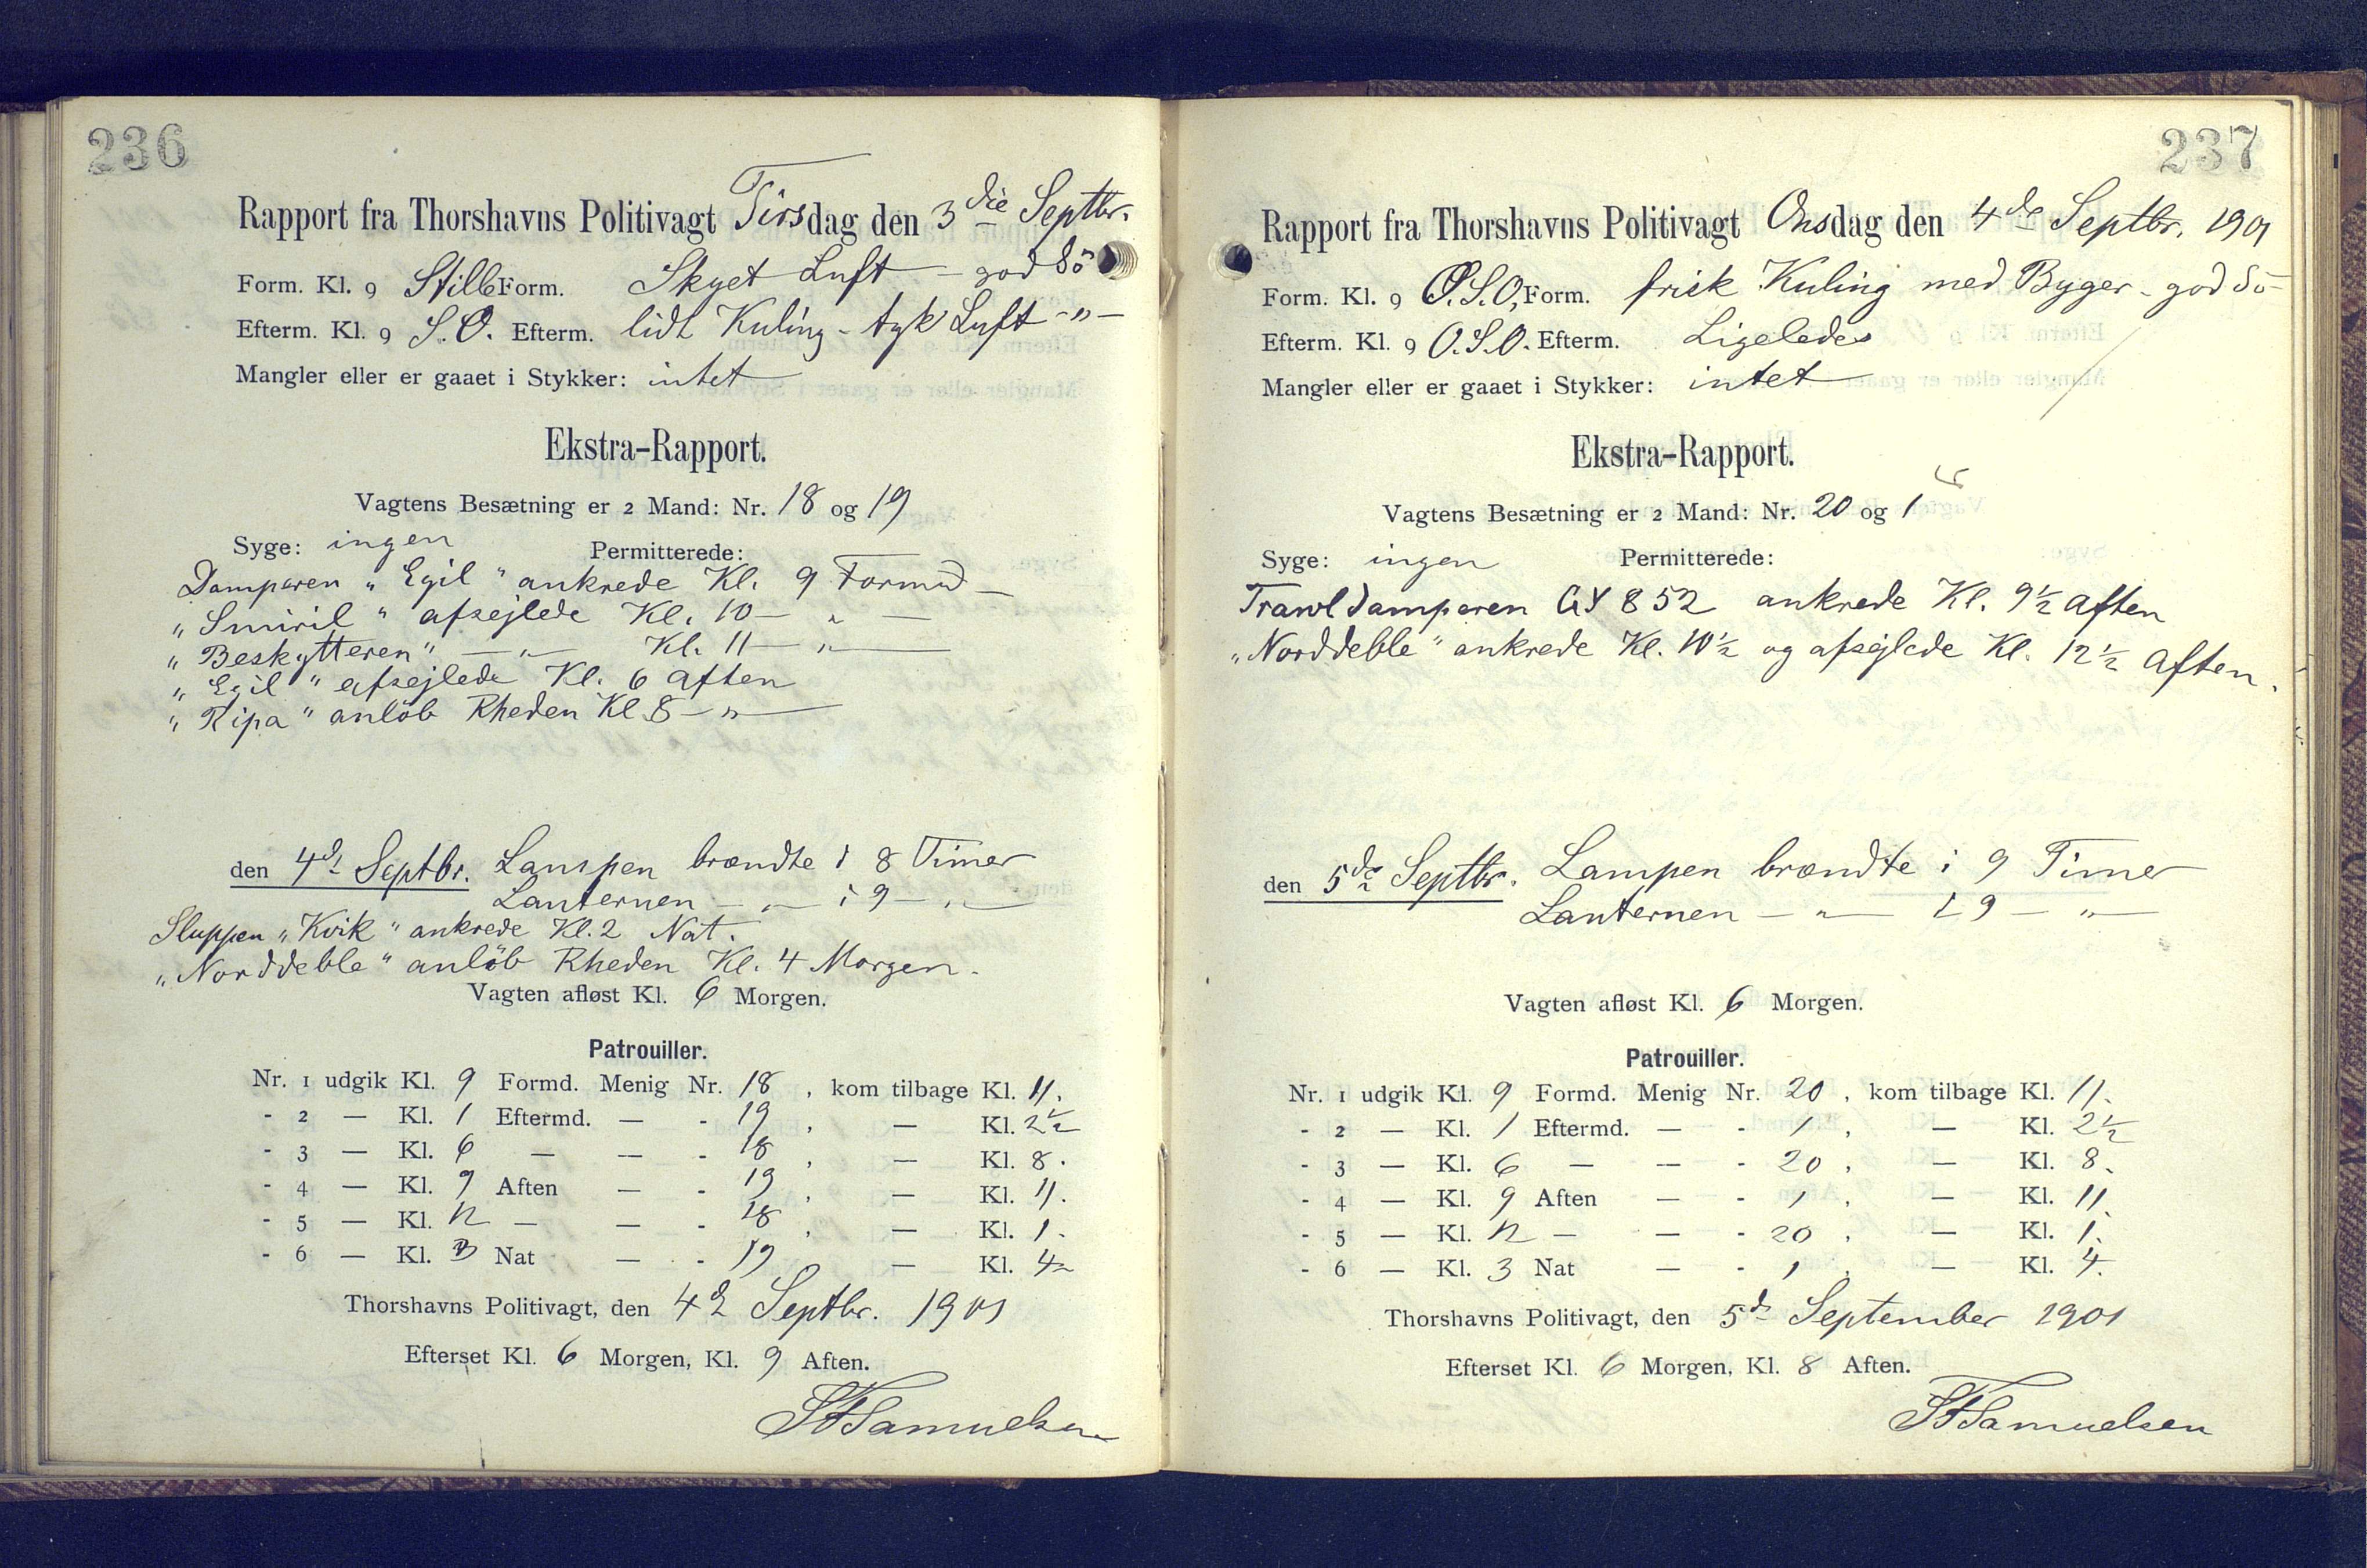 236
Rapport fra Thorshavns Politivagt Tirsdag den 3die Septbr.
Form. Kl. 9 Stille Form. Skyet Luft - god Sö
Efterm. Kl. 9 S.O. Efterm. lidt Kuling - tyk Luft -"-
Mangler eller er gaaet i Stykker: intet
Ekstra-Rapport.
Vagtens Besætning er 2 Mand: Nr. 18 og 19
Syge: ingen Permitterede:
Damperen „Egil" ankrede Kl. 9 Formd —
„Smiril" afsejlede Kl. 10 — „ —
„Beskytteren" — „ — Kl. 11 — „ —
„Egil" afsejlede Kl. 6 Aften
„Ripa" anlöb Rheden Kl. 8 — „ —
den 4de Septbr. Lampen brændte i 8 Timer
Lanternen — „ — i 9 — „ —
Sluppen „Kvik" ankrede Kl. 2 Nat.
„Norddeble" anlöb Rheden Kl. 4 Morgen.
Vagten afløst Kl. 6 Morgen.
Patrouiller.
Nr. 1 udgik Kl. 9 Formd. Menig Nr. 18, kom tilbage Kl. 11.
- 2 — Kl. 1 Eftermd. — - 19, — Kl. 2½
- 3 — Kl. 6 — — - 18, — Kl. 8.
- 4 — Kl. 9 Aften — - 19, — Kl. 11.
- 5 — Kl. 12 — — - 18, — Kl. 1.
- 6 — Kl. 3 Nat — - 19 — Kl. 4
Thorshavns Politivagt, den 4de Septbr. 1901
Efterset Kl. 6 Morgen, Kl. 9 Aften.
Samuelsen
237
Rapport fra Thorshavns Politivagt Onsdag den 4de Septbr. 1901
Form. Kl. 9 O.S.O, Form. frisk Kuling med Byger - god Sö
Efterm. Kl. 9 O.S.O. Efterm. Ligeledes
Mangler eller er gaaet i Stykker: intet
Ekstra-Rapport.
Vagtens Besætning er 2 Mand: Nr. 20 og 1
Syge: ingen Permitterede:
Trawldamperen GY 852 ankrede Kl. 9½ Aften
„Norddeble" ankrede Kl. 10½ og afsejlede Kl. 12½ Aften.
den 5de Septbr. Lampen brændte i 9 Timer
Lanternen — „ — i 9 — „ —
Vagten afløst Kl. 6 Morgen.
Patrouiller.
Nr. 1 udgik Kl. 9 Formd. Menig Nr. 20, kom tilbage Kl. 11.
- 2 — Kl. 1 Eftermd. — - 1, — Kl. 2½
- 3 — Kl. 6 — — - 20, — Kl. 8.
- 4 — Kl. 9 Aften — - 1, — Kl. 11.
- 5 — Kl. 12 — — - 20, — Kl. 1.
- 6 — Kl. 3 Nat — - 1, — Kl. 4.
Thorshavns Politivagt, den 5de September 1901
Efterset Kl. 6 Morgen, Kl. 8 Aften.
Samuelsen